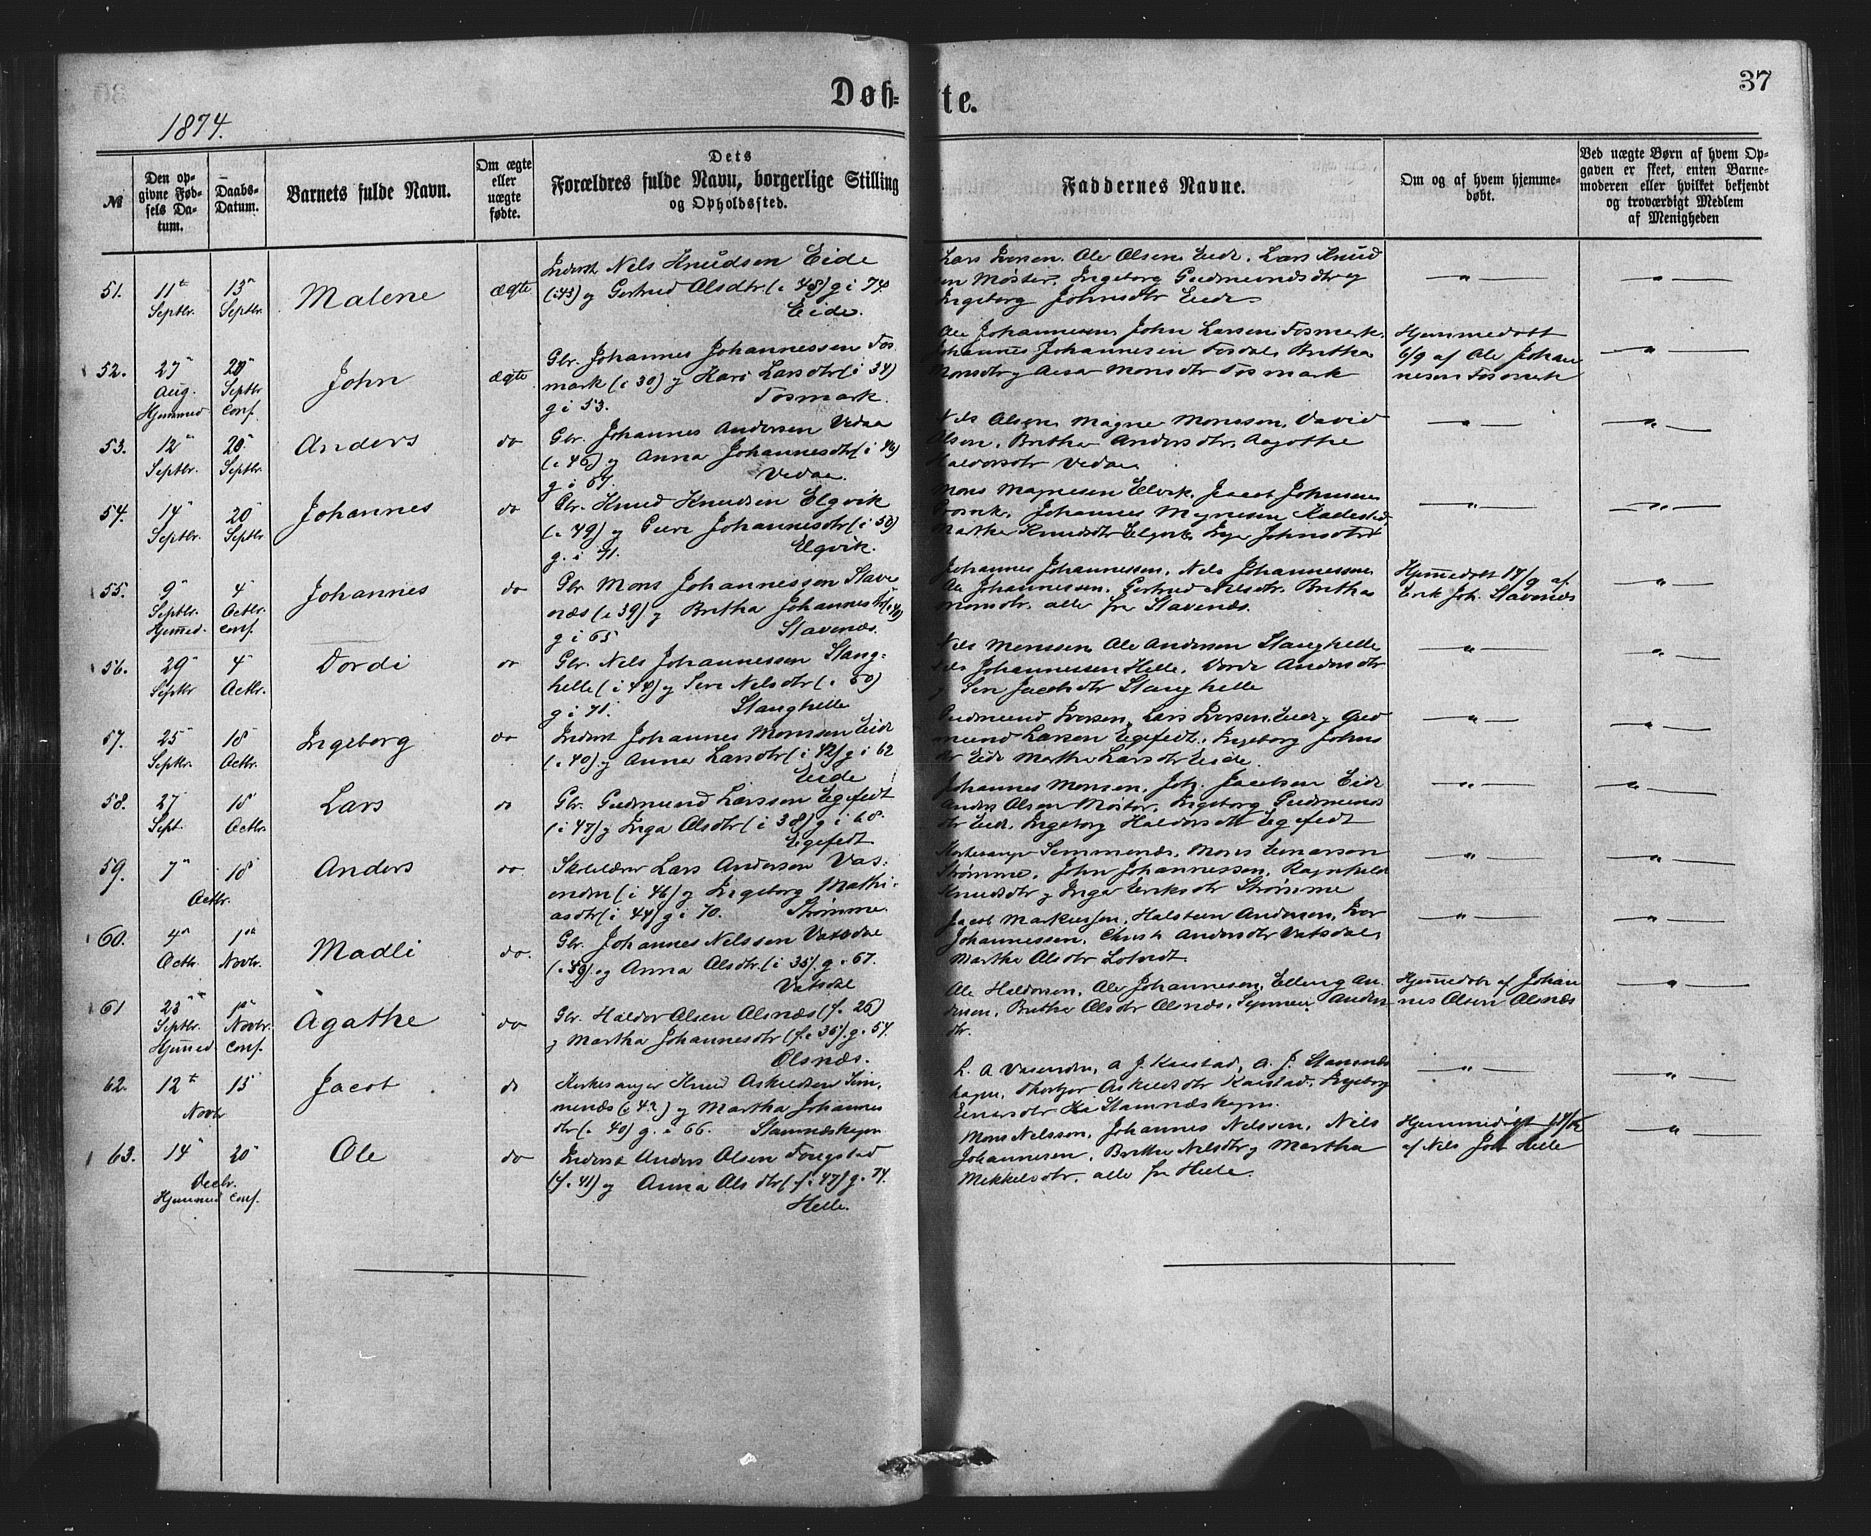 37
Døb= te.
1874.
№
Den op-
givne Fød-
sels Da-
tum.
Daabs-
Datum.
Barnets fulde Navn.
Om ægte
eller
uægte
fødte.
Dets
Forældres fulde Navn, borgerlige Stilling
og Opholdssted.
Faddernes Navne.
Om og af hvem hjemme-
døbt.
Ved uægte Børn af hvem Op-
gaven er skeet, enten Barne-
moderen eller hvilket bekjendt
og troværdigt Medlem
af Menigheden
51. 11t Septbr. 13d Septbr. Malene ægte
Inderst Nels Knudsen Eide
(i 43) og Gertrud Olsdtr (i 48) g i 74.
Eide.
Lars Iversen, Ole Olsen Eide, Lars Knud
sen Møster, Ingeborg Gudmundsdtr og
Ingeborg Johnsdtr Eide
52. 27 Aug. Hjemmed. Septbr. Conf. John ægte
Gbr. Johannes Johannessen Fos
mark (i 30) og Kari Larsdtr (i 34)
g i 53. Fosmark.
Ole Johannesen, John Larsen Fosmark,
Johannes Johannesen Fosdal, Britha
Monsdtr og Aasa Monsdtr Fosmark
Hjemmedøbt
6/9 af Ole Johan
nesen Fosmark
53. 12 Septbr. 20 Septbr. Anders do
Gbr. Johannes Andersen Vedaa
(i 46) og Anna Johannesdtr (i 46)
g i 67. Vedaa.
Nils Olsen, Magne Monsson, David
Olsen, Britha Andersdtr, Aagothe
Haldorsdtr Vedaa
54. 14 Septbr. 20 Septbr. Johannes do
Gbr. Knud Knudsen Elgvik
(i 49) og Johannesdtr (i 50)
g. i 71. Elgvik.
Mons Magnesen Elvik, Jacob Johnsen
Johannes Mognesen Kallestad,
Marthe Knudsdtr Elgvik, Johnsdtr
55. 9 Septbr. Hjemmed. 4 Octbr. Conf. Johannes do
Gbr Mons Johannesson Stave
næs (i 39) og Britha Johannesdtr
g i 65 Stavenæs.
Johannes Johannessen, Nils Johannessen
Ole Johannessen, Gertrud Nilsdtr, Britha
Monsdtr, alle fra Stavenæs.
Hjemmedøbt 17/9 af
Erik Joh. Stavenæs
56. 29 Septbr 4 Octbr. Dordi do
Gbr. Nels Johannessen Stang-
helle (i 44) og Siri Nelsdtr (i 50)
g i 71. Stanghelle
Nils Monssen, Ole Andersen Stanghelle
Nils Johannessen Helle, Dorde Andersdtr
og Siri Jacobsdtr Stanghelle
57. 25 Septbr. 18 Octbr. Ingeborg do
Inderst Johannes Monsen Eide
(i 40) og Anna Larsdtr (i 42) g i 62
Eide
Gudmund Iversen, Lars Iversen Eide, Gud
mund Larsen Egefedt, Ingeborg Johns
dtr Eide Martha Larsdtr Eide.
58. 27 Sept. 18 Octbr. Lars do
Gbr. Gudmund Larssen Egefedt
(i 47) og Inga Olsdtr (i 38) g i 68.
Egefedt
Johannes Monsen, Joh. Jacobsen Eide
Anders Olsen Møster, Ingeborg Gudmunds
dtr Eide, Ingeborg Haldorsdtr Egefedt
59. 7 18 Octbr. Anders do
Skolelærer Lars Andersen Vas-
enden (i 46) og Ingeborg Mathi-
asdtr (i 44) g i 70. Strømme.
Kirkesanger Simmenæs, Mons Einarson
Strømme, John Johannesson, Ragnhild
Knudsdtr og Inga Eriksdtr Strømme
60. 4 Octbr. 1 Novbr. Madli do.
Gbr. Johannes Nelssen Vatsdal
og Anna Olsdtr. (i 35) g. i 67.
Vatsdal
Jacob Markussen, Halsteen Andersen, Ivar
Johannessen, Andersdtr Vatsdal,
Martha Olsdtr
61 23 Septbr. Hjemmed. 1 Novbr. Conf. Agathe do
Gbr. Haldor Olsen Olsnæs (f. 26)
og Martha Johannesdtr (f. i 35) g. i 57
Olsnæs.
Ole Haldorsen, Ole Johannesen, Elling An-
dersen, Britha Olsdtr Olsnæs, Synneve Anders
dtr.
Hjemmedøbt af Johan
nes Olsen Olsnæs
62. 12t 15 Novbr Jacob do
Kirkesanger Knud Askildsen Sim
menæs (i 42) og Martha Johannes
dtr (i 40) g. i 66. Stamnæshagen
L. A Vasenden, A J. Kallestad, A. J. Stamnæs
hagen, Askildsdtr Kallestad, Ingeborg
Einarsdtr Stamnæshagen.
63. 14 Decbr. Hjemmed 20 Conf. Ole do
Inderst Anders Olsen
(f. i 41) og Anna Olsdtr (f. i 47) g. i 74.
Helle.
Mons Nelsson, Johannes Nelsson, Nils
Johannesen, Britha Nilsdtr og Martha
Mikkelsdtr, alle fra Helle.
Hjemmedøbt
af Nils Joh Helle